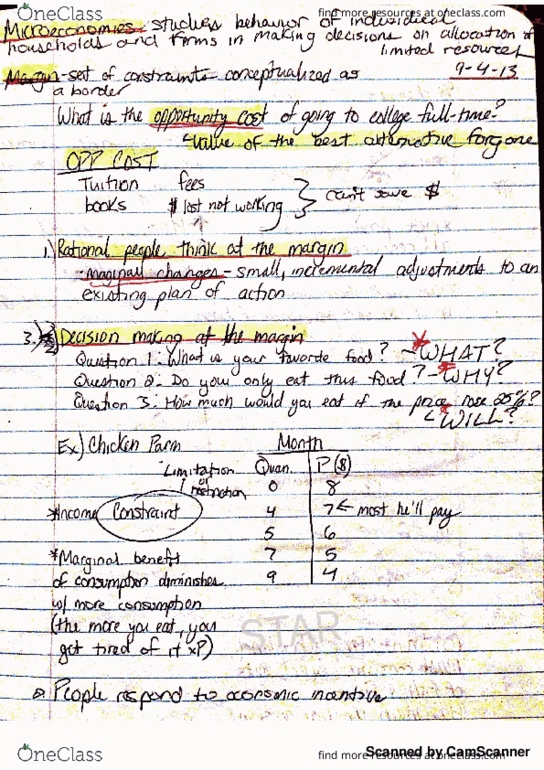 OneClass
find more resources at oneclass.com
Microeconomics - studies behavior of individual
households and firms in making decisions on allocation of
limited resources
9-4-13
Margin - set of constraints conceptualized as
a border
What is the opportunity cost of going to college full-time?
value of the best alternative forgone
OPP COST
Tuition fees
books $ lost not working } can't save $
1.) Rational people think at the margin
marginal changes - small, incremental adjustments to an
existing plan of action
3.) Decision making at the margin
Question 1: What is your favorite food? - WHAT?
Question 2: Do you only eat this food? - WHY?
Question 3: How much would you eat if the price rose 25%?
WILL?
Ex) Chicken Parm Month
Limitation or restriction Quan. P($)
0 8
*Income Constraint 4 7 ← most he'll pay
5 6
*Marginal benefit 7 5
of consumption diminishes 9 4
w/ more consumption
(the more you eat, you
get tired of it xP)
STAR
People respond to economic incentive
OneClass
find more resources at oneclass.com
Scanned by CamScanner